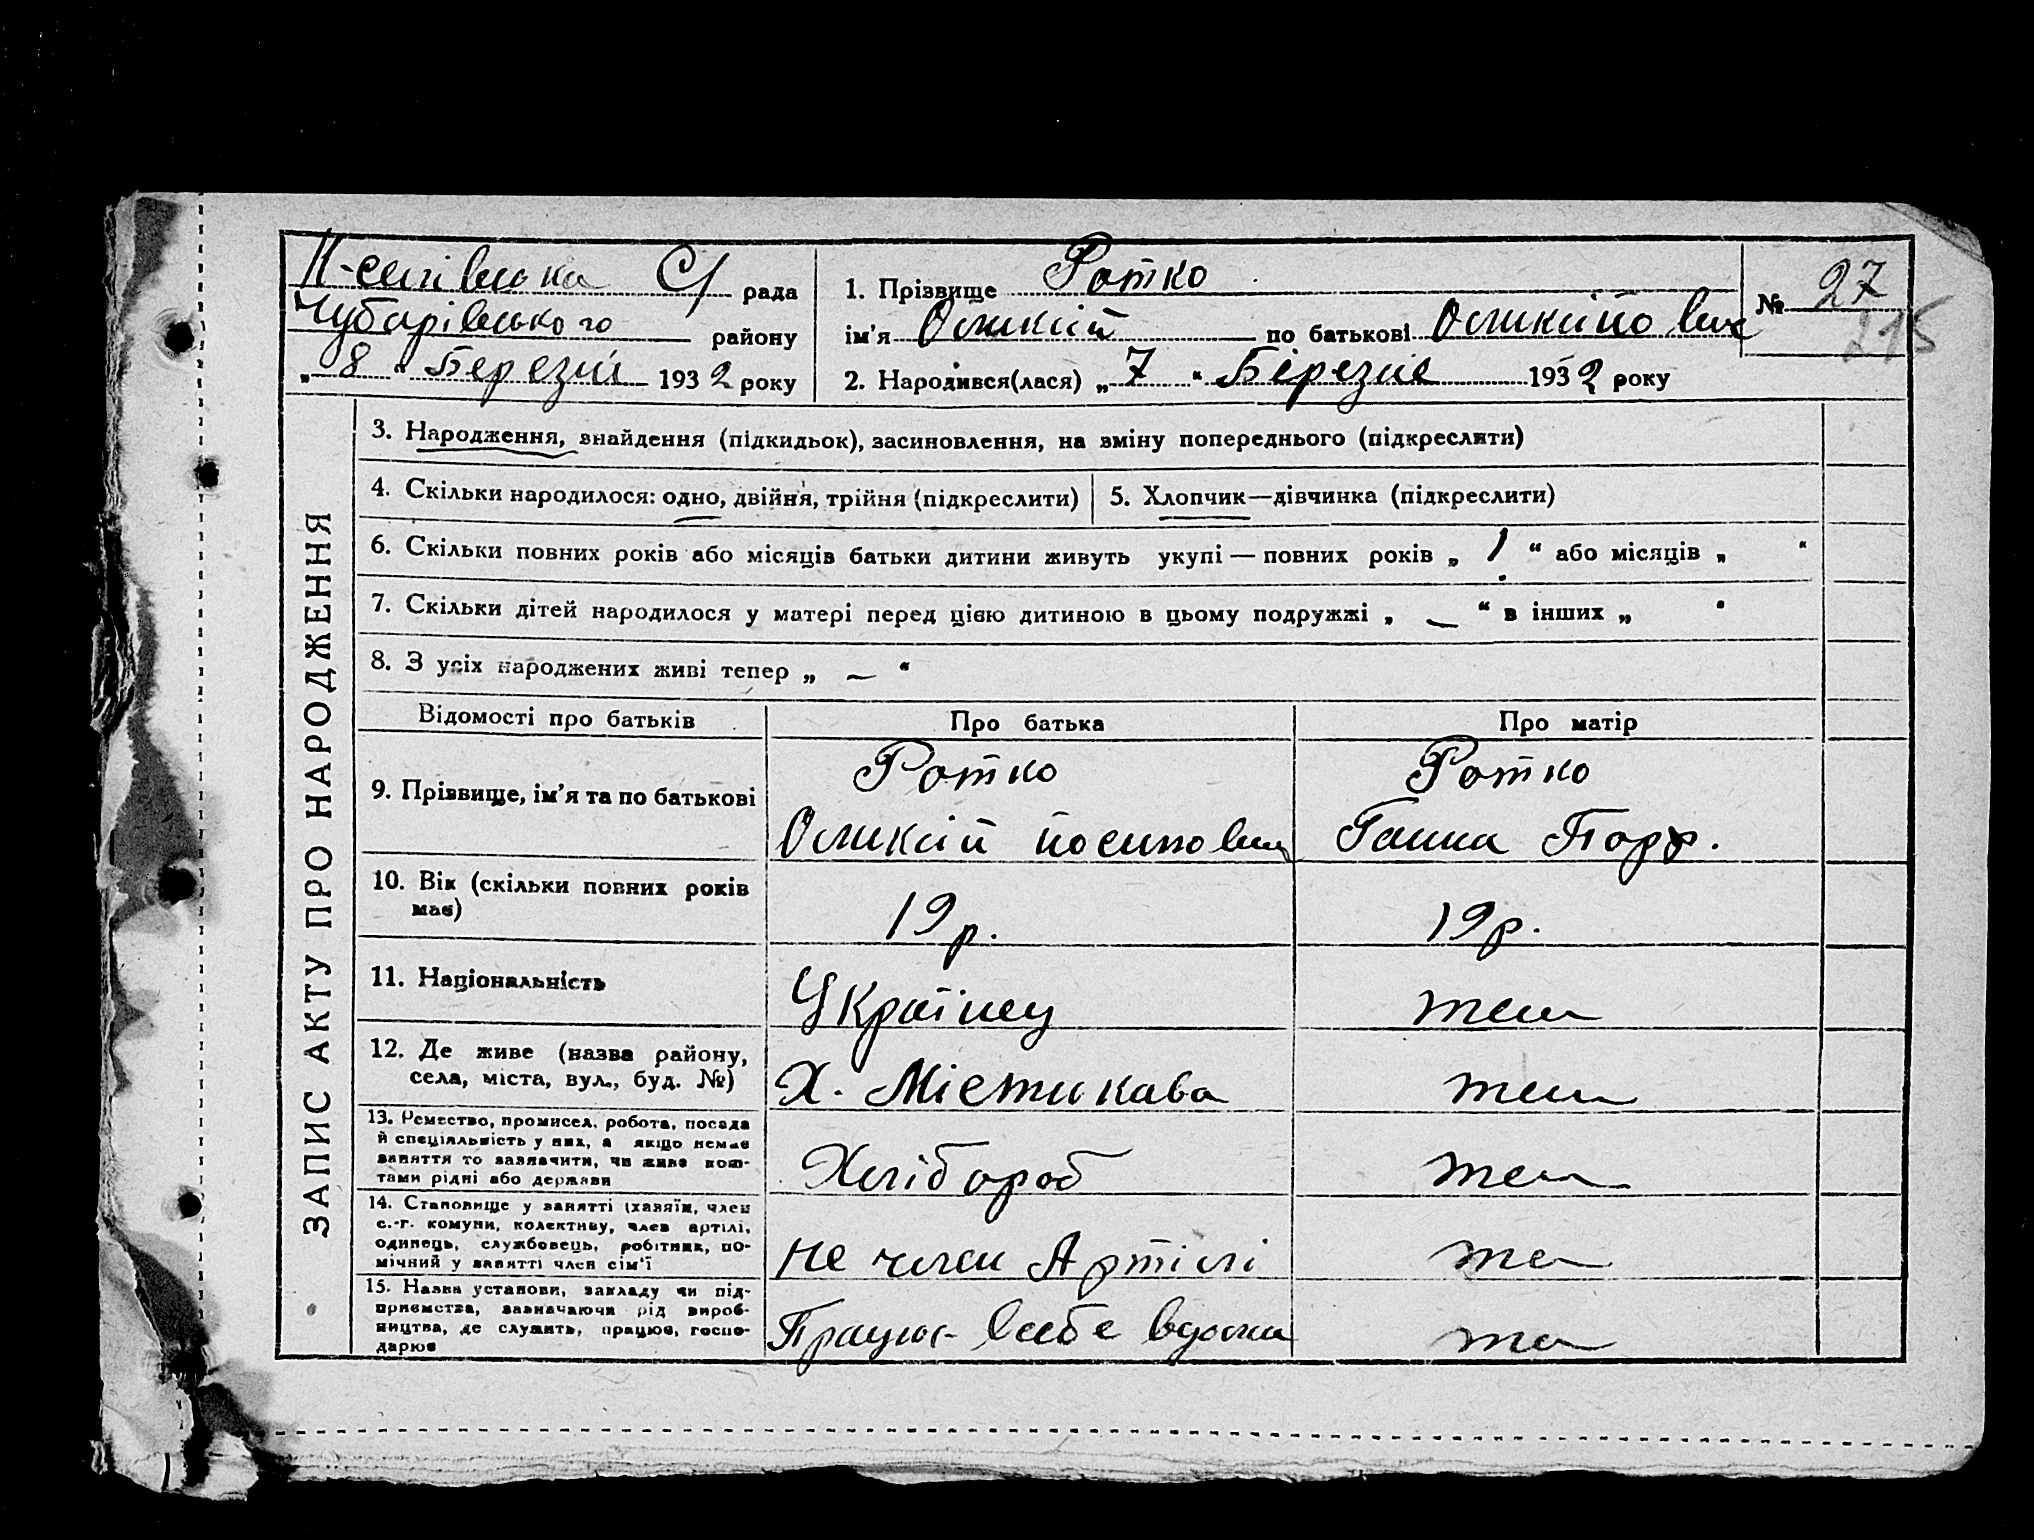 Н-сілівська С/ рада
Чубарівського району
„ 8 “ Березня 1932 року
1. Прізвище Ротко
ім’я Оликсій по батькові Оликсійович
2. Народився(лася) „ 7 “ Бірезне 1932 року
№ 27
215
ЗАПИС АКТУ ПРО НАРОДЖЕННЯ
3. Народження, знайдення (підкидьок), засиновлення, на зміну попереднього (підкреслити)
4. Скільки народилося: одно, двійня, трійня (підкреслити)
5. Хлопчик—дівчинка (підкреслити)
6. Скільки повних років або місяців батьки дитини живуть укупі — повних років „ 1 “ або місяців „ “
7. Скільки дітей народилося у матері перед цією дитиною в цьому подружжі „ — “ в інших „ “
8. З усіх народжених живі тепер „ — “
Відомості про батьків
Про батька
Про матір
9. Прізвище, ім’я та по батькові
Ротко
Оликсій Йосипович
Ротко
Ганна Порф.
10. Вік (скільки повних років
має)
19 р.
19 р.
11. Національність
Українец
теж
12. Де живе (назва району,
села, міста, вул., буд. №)
Х.
теж
13. Ремество, промисел, робота, посада
й спеціяльність у них, а якщо немає
заняття то зазначити, чи живе кош-
тами рідні або держави
Хлібороб
теж
14. Становище у занятті (хазяїн, член
с.-г. комуни, колективу, член артілі,
одинець, службовець, робітник, по-
мічний у занятті член сім’ї
не член Артілі
теж
15. Назва установи, закладу чи під-
приємства, зазначаючи рід вироб-
ництва, де служить, працює, госпо-
дарює
Працює в себе вдома
теж